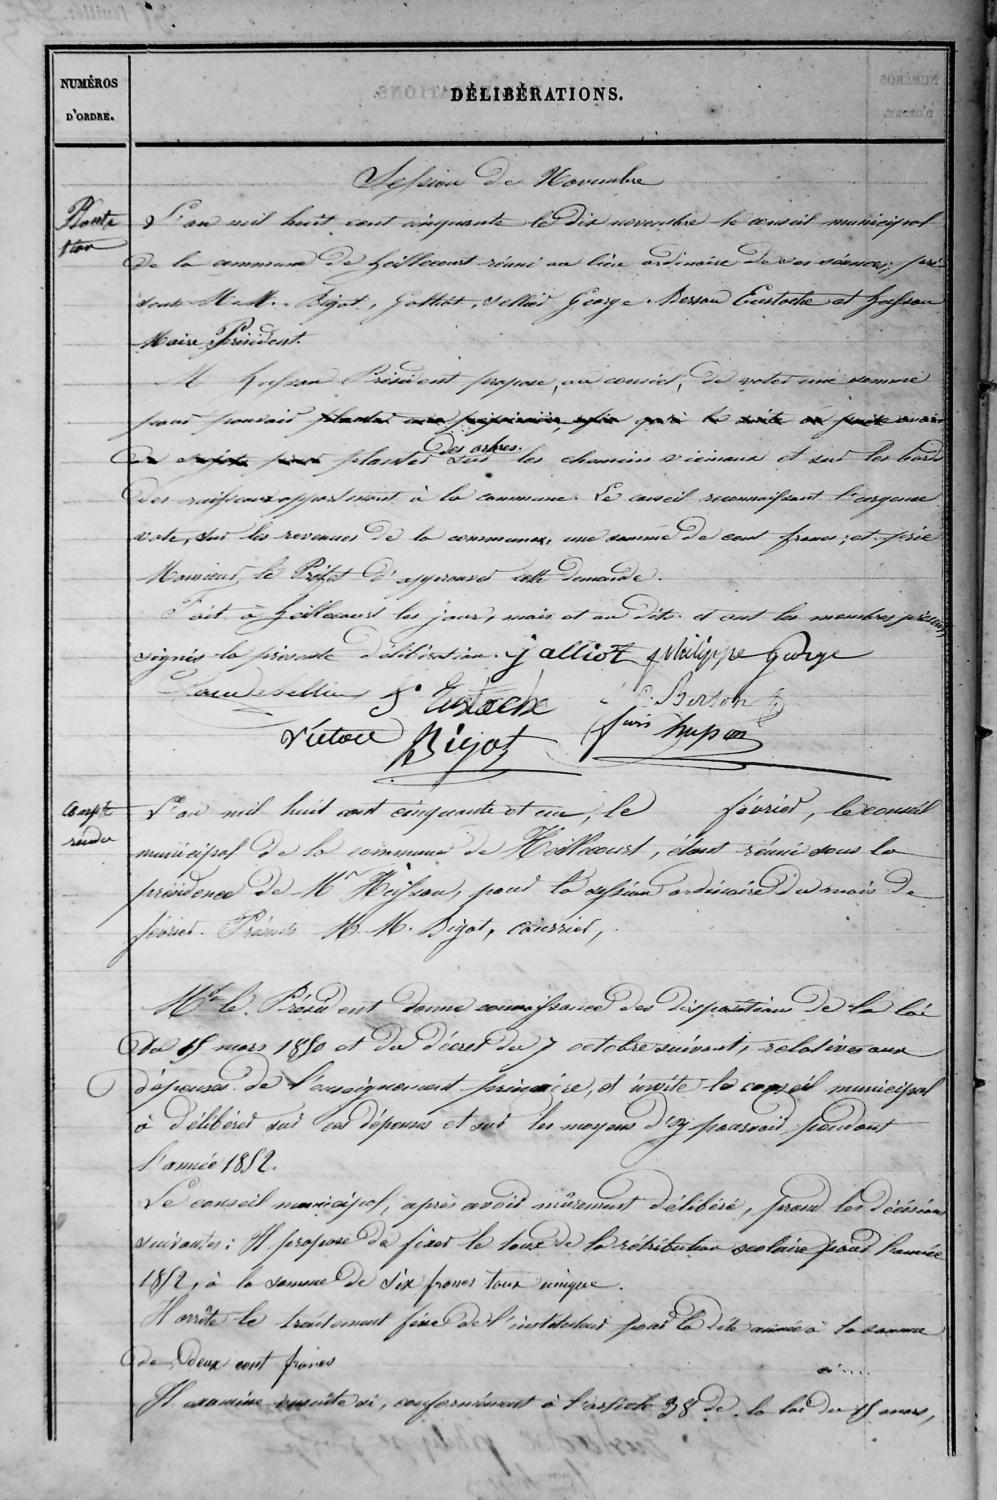 NUMÉROS
D'ORDRE.
DÉLIBÉRATIONS.
Session de Novembre
Planta
tion
L'an mil huit cent cinquante le dix novembre le conseil municipal
de la commune de heillecourt réuni au lieu ordinaire de ses séances; pré
sents M.M. Bigot, Galliot, sellier George Berson Eustache et husson
Maire Président.
M husson Président propose, au conseil, de voter une somme
pour pouvoir planter une pépinière, afin que la suite on puisse avoir
des sujets pour planter des arbres sur les chemins vicinaux et sur les bords
des ruisseaux appartenant à la commune. Le conseil reconnaissant l'urgence
vote, sur les revenus de la commune, une somme de cent francs; et prie
Monsieur le Préfet d'approuver cette demande.
Fait à heillecourt les jour, mois et an dits et ont les membres présents
signés la présente délibération. j alliot philippe George
sellier f. Eustache C. Berson
Victor Bigot husson
Compte
rendu
L'an mil huit cent cinquante et un, le février, le conseil
municipal de la commune de Heillecourt, étant réuni sous la
présidence de Mr Husson, pour la session ordinaire du mois de
février. Présents M.M. Bigot, courrier,
Mr le Président donne connaissance des dispositions de la loi
du 15 mars 1850 et du décret du 7 octobre suivant, relatives aux
dépenses de l'enseignement primaire, et invite le conseil municipal
à délibérer sur ces dépenses et sur les moyens d'y pourvoir pendant
l'année 1852.
Le conseil municipal, après avoir mûrement délibéré, prend les décisions
suivantes: Il propose de fixer le taux de la rétribution scolaire pour l'année
1852, à la somme de six francs taux unique.
Il arrête le traitement fixe de l'instituteur pour la dite année à la somme
de deux cent francs
Il examine ensuite si, conformément à l'article 38 de la loi du 15 mars,